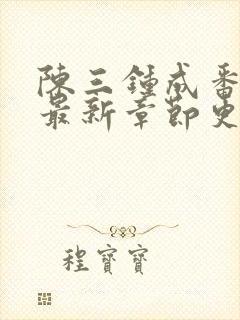 陳三鍾成番
最新章節
程寶寶